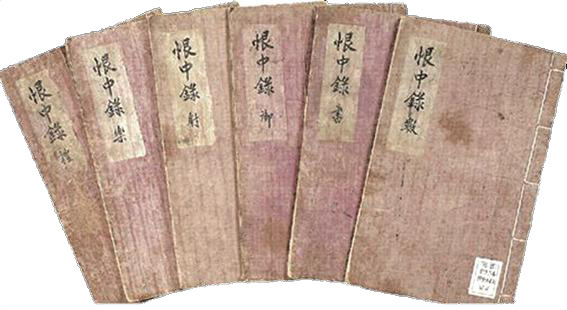 恨中錄 禮
恨中錄 樂
恨中錄 射
恨中錄 御
恨中錄 書
恨中錄 數